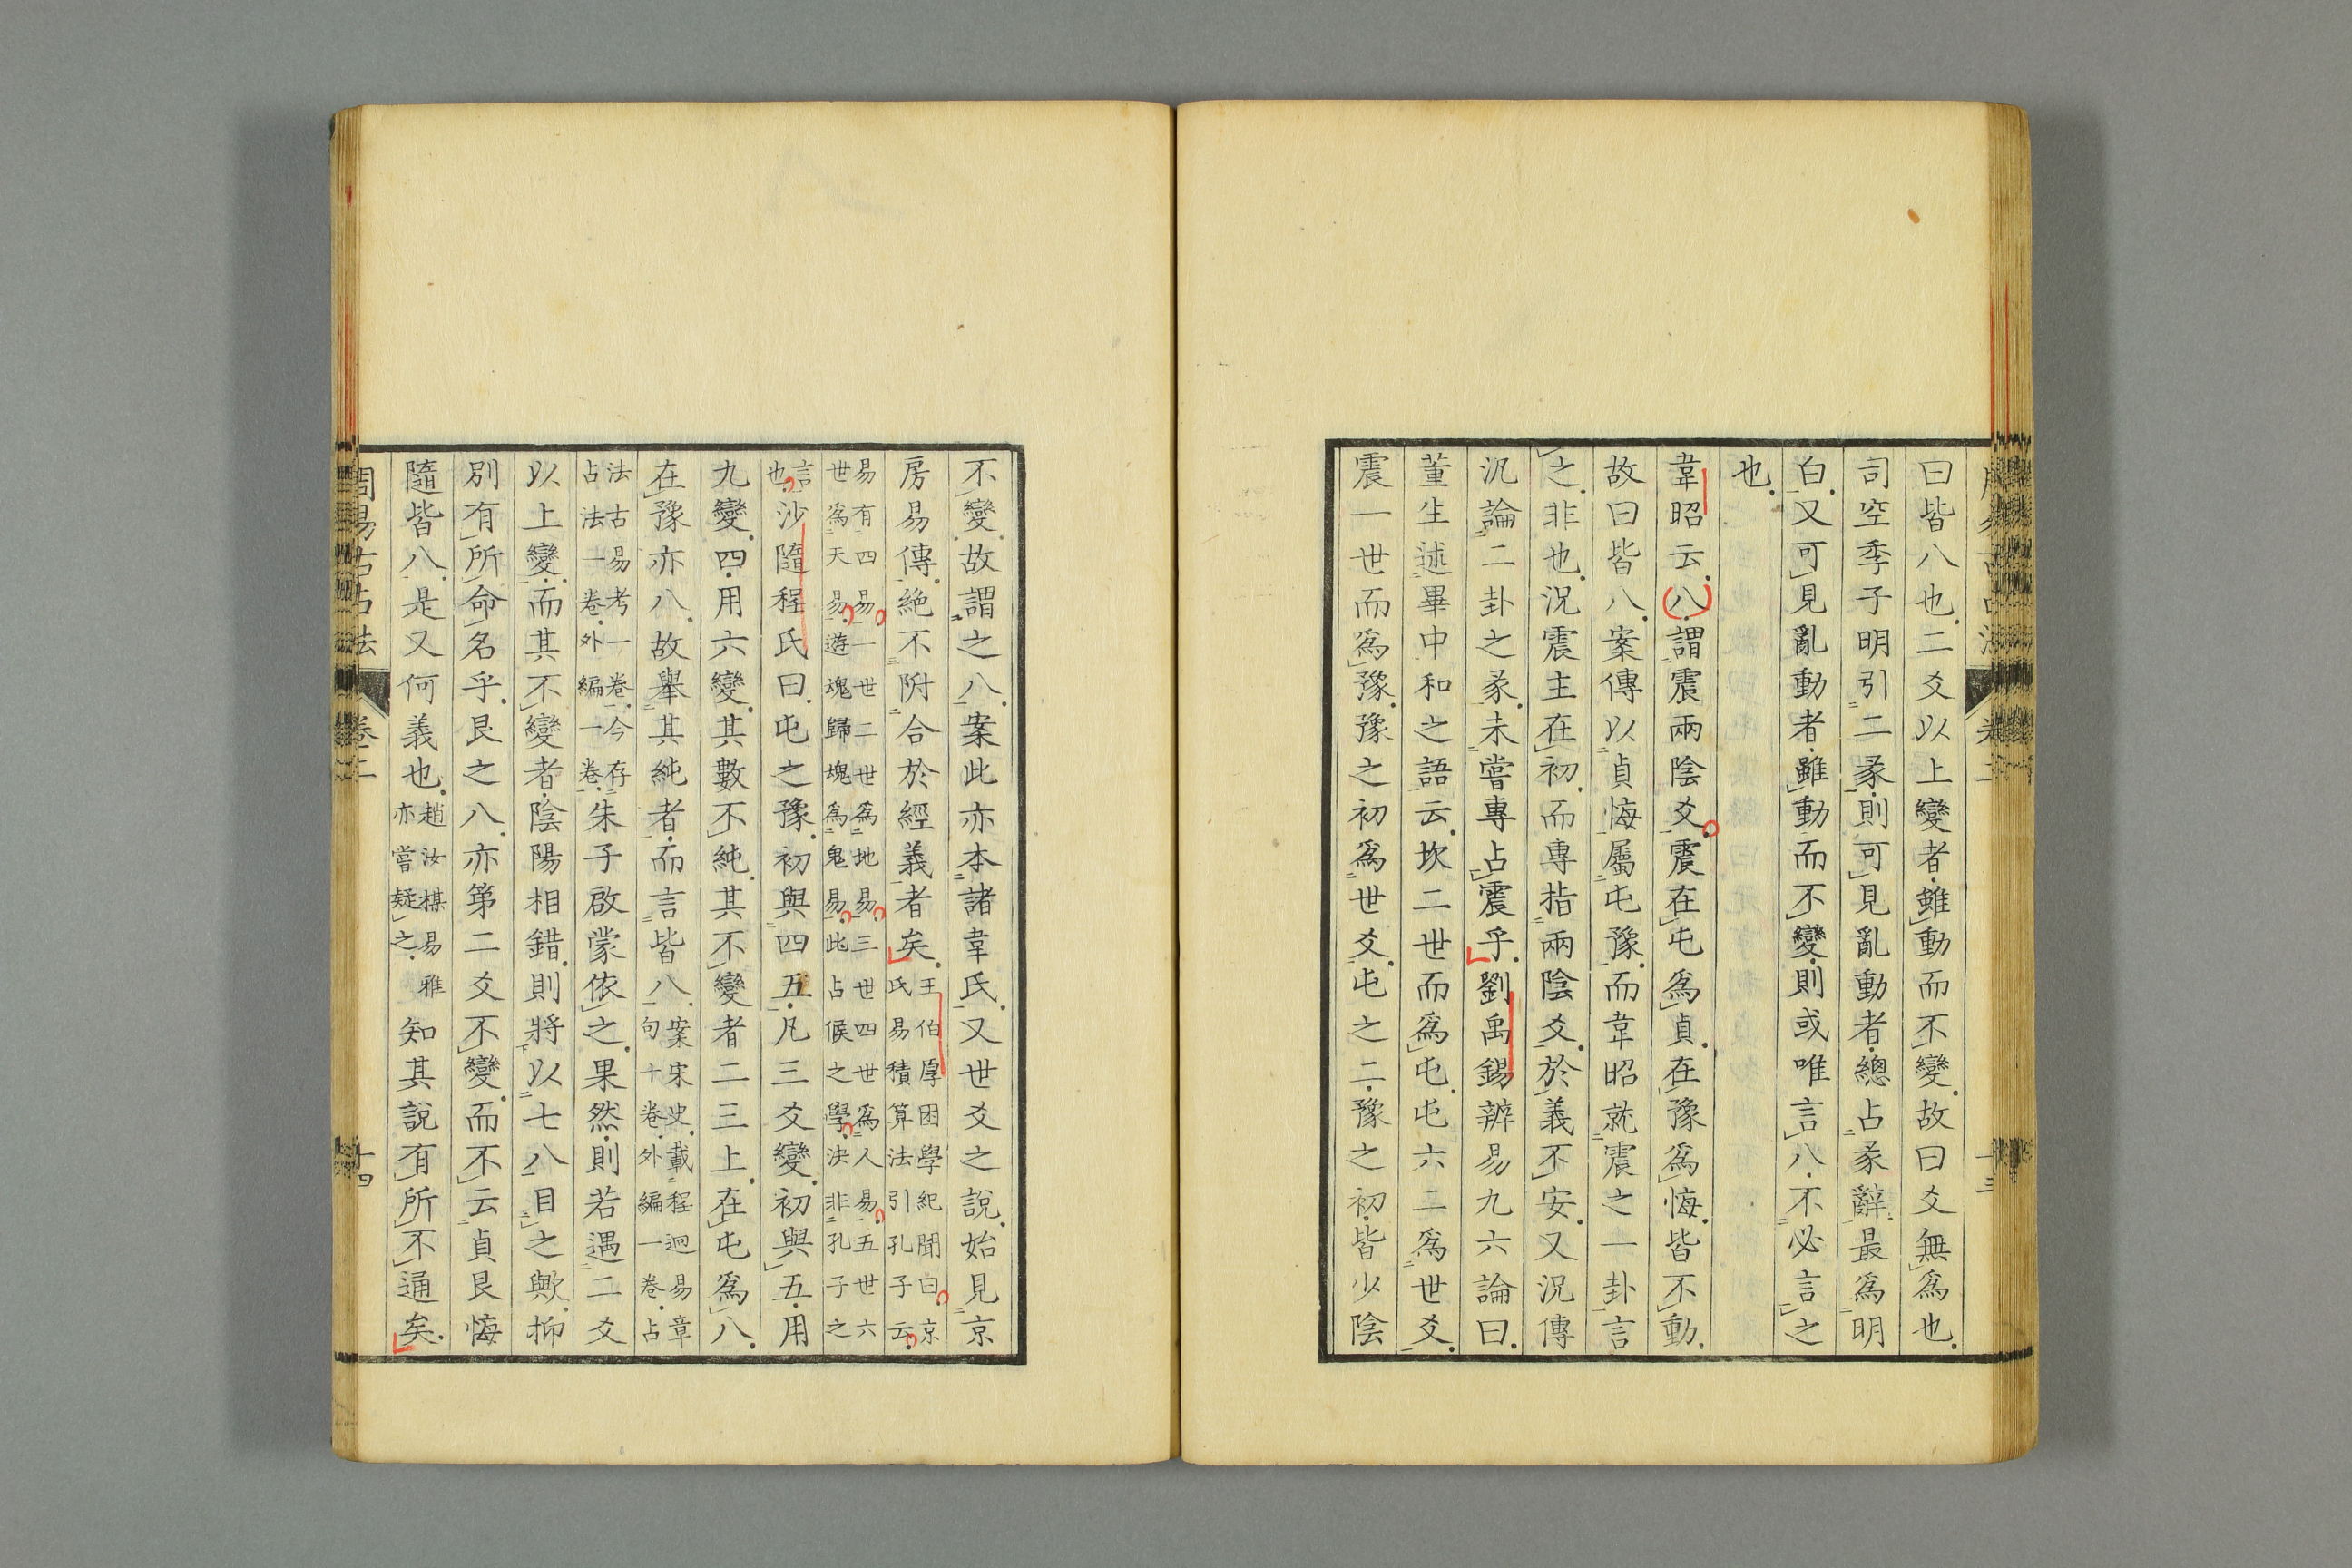 曰皆八也二爻以上變者雖動而不變故曰爻無爲也
司空季子明引二彖則可見亂動者總占彖辭最爲明
白又可見亂動者雖動而不變則或唯言八不必言之
也
韋昭云八謂震兩陰爻震在屯爲貞在豫爲悔皆不動
故曰皆八案傳以貞悔屬屯豫而韋昭就震之一卦言
之非也況震主在初而專指兩陰爻於義不安又況傳
況論二卦之彖未嘗專占震乎劉禹錫辨易九六論曰
董生述畢中和之語云坎二世而爲屯屯六二爲世爻
震一世而爲豫豫之初爲世爻屯之二豫之初皆少陰
不變故謂之八案此亦本諸韋氏又世爻之說始見京
房易傳絶不附合於經義者矣王伯厚困學紀聞曰京
氏易積算法引孔子云
易有四易一世二世爲地易三世四世爲人易五世六
世爲天易遊魂歸魂爲鬼易此占候之學決非孔子之
言
也沙隨程氏曰屯之豫初與四五凡三爻變初與五用
九變四用六變其數不純其不變者二三上在屯爲八
在豫亦八故舉其純者而言皆八案宋史載程迥易章
句十卷外編一卷占
法古易考一卷今存
占法一卷外編一卷朱子啟蒙依之果然則若遇二爻
以上變而其不變者陰陽相錯則將以七八目之歟抑
別有所命名乎艮之八亦第二爻不變而不云貞艮悔
隨皆八是又何義也趙汝楳易雅
亦嘗疑之知其說有所不通矣
周易古占法
卷二
十四